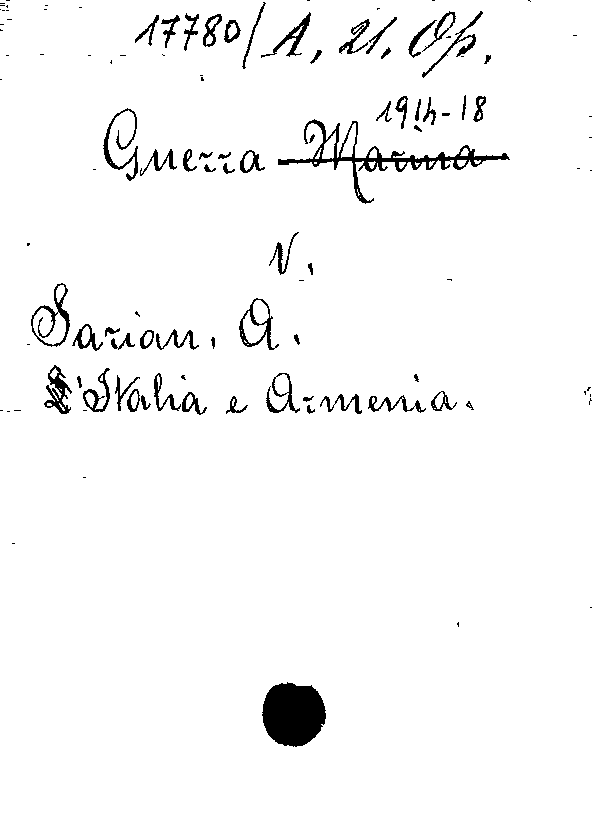 17780/A. 21. Op.
1914-18
Guerra Marina.
V.
Sarian. A.
L'Italia e Armenia.